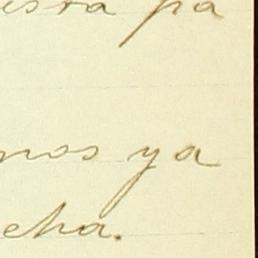 estra pa
nos ya
cha.